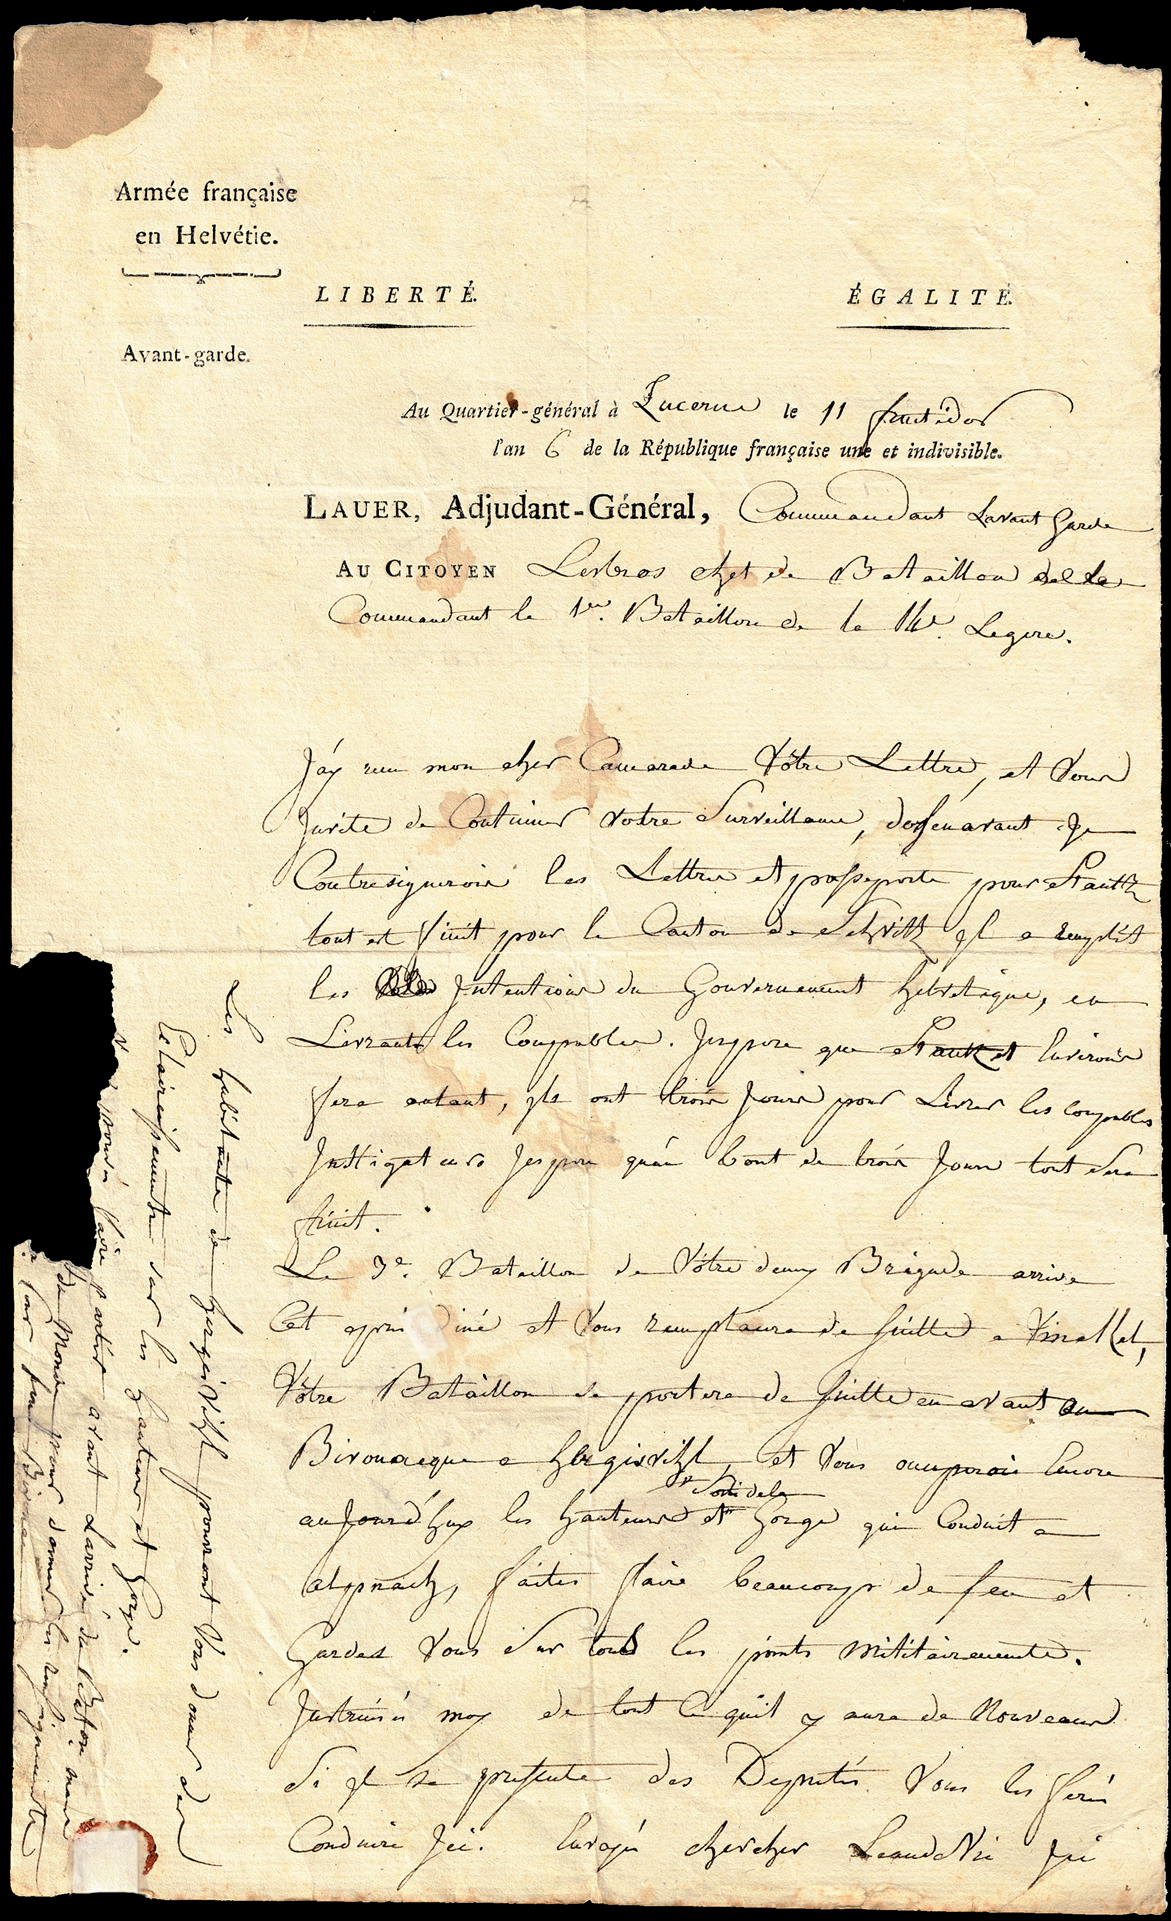 Armée française
en Helvétie.
LIBERTÉ. ÉGALITÉ.
Avant-garde.
Au Quartier-général à Lucerne le 11 fructidor
l'an 6 de la République française une et indivisible.
LAUER, Adjudant-Général, Commandant Lavant Garde
AU CITOYEN chef de Bataillon
Commandant le 1er. Bataillon de la 14e. Legere.
J'ay reçu mon cher Camarade Vôtre Lettre, et Vous
Invite de Continuer votre Surveillance, dorsenavant Je
Contresignerois les Lettres et passeports pour Stantz
tout est finit pour le Canton de Schvitz Jl a remplit
les Intentions du Gouvernement helvetique, en
Livrants les Coupables. Jespere que Stantz et Environs
fera autant, Jls ont trois Jours pour Livrer les coupables
Instigateurs Jespere quáu bout de trois Jours tout sera
finit.
Le 3e. Bataillon de Vôtre demy Brigade arrive
Cet apres diné et Vous remplacera de suitte a
Vôtre Bataillon se portera de suitte en avant au
Birouacque a hergisvihl, et Vous occuperois Encore
aujourd'huy les hauteurs et Gorge qui Conduit a
alpnach, faites faire beaucoup de feu et
Gardes Vous sur tous les points militairements.
Instruisés moy de tout ce quil y aura de Nouveaux
Si Jl se presente des Deputés Vous les ferés
Conduire Jci. Envoyés chercher Jci
Les habitants de hergisvihl pourront Vous donner des
Eclaircissements sur les hauteurs et Gorge.
faire partir avant Larrivé du Baton
du Monde pour donner les renseignements